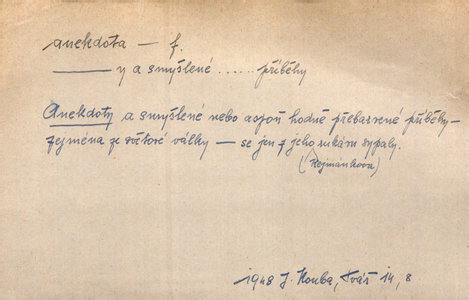 anekdota — f.
——— y a smyšlené ...... příběhy
Anekdoty a smyšlené nebo aspoň hodně přebarvené příběhy –
zejména ze světové války — se jen z jeho rukávu sypaly.
(Hejmánkova)
1948 J. Kouba, Tvář 14, 8